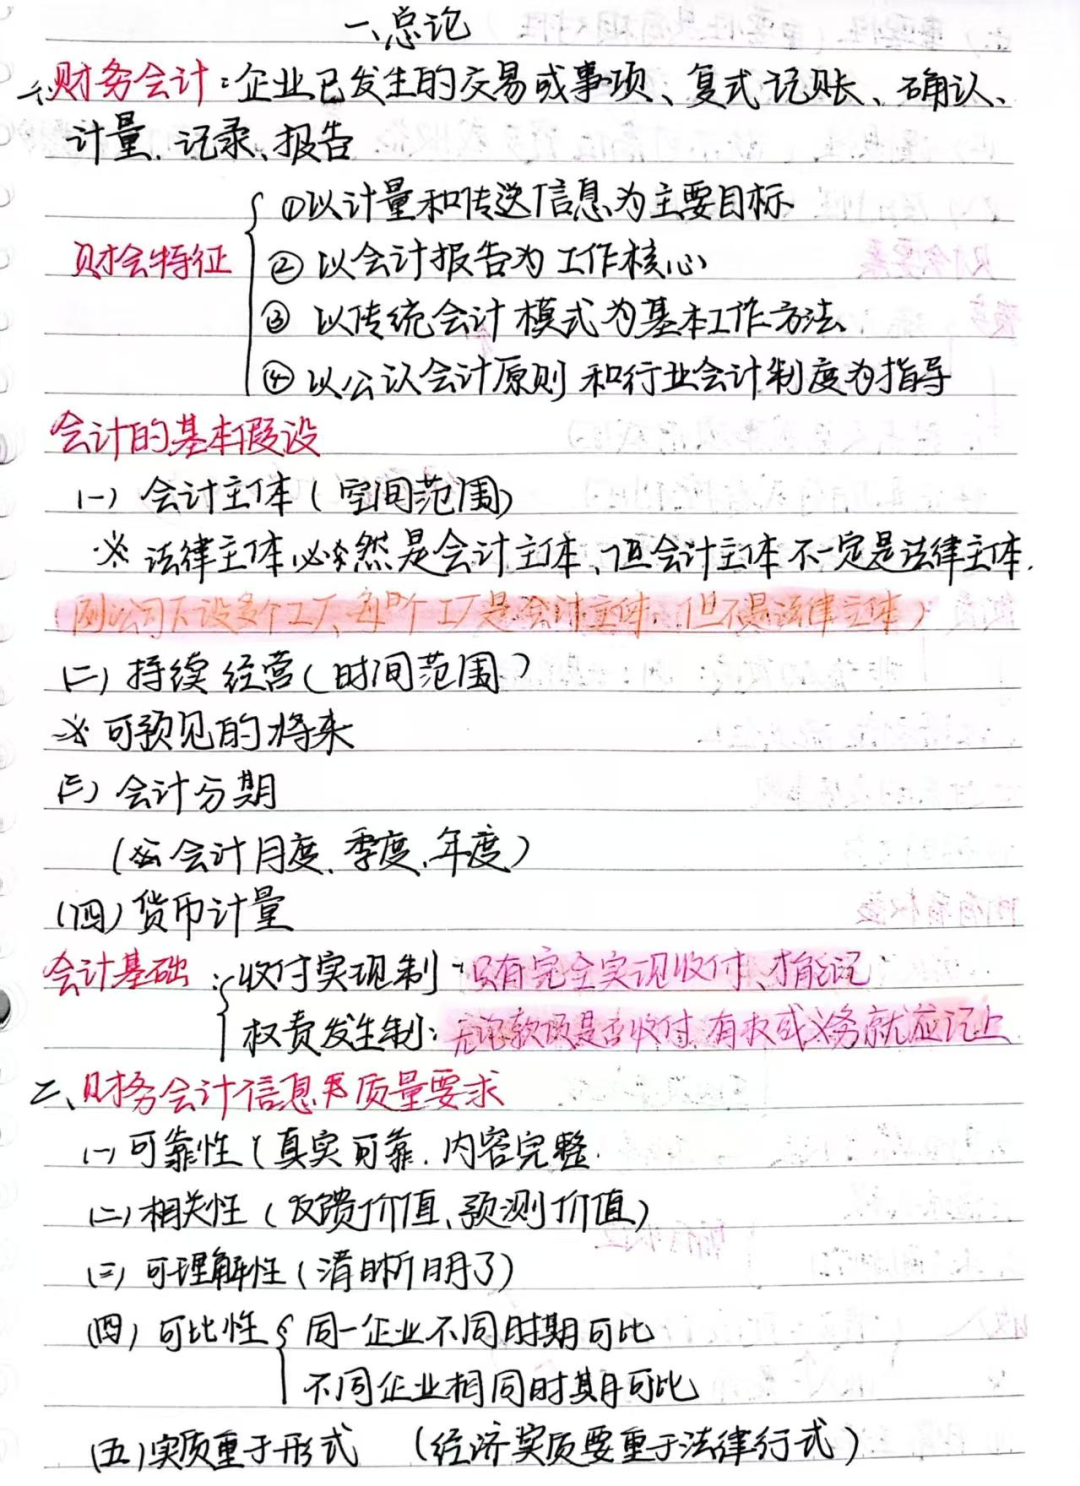 一、总论
一、财务会计：企业已发生的交易或事项、复式记账、确认、
计量、记录、报告
财会特征
①以计量和传送信息为主要目标
②以会计报告为工作核心
③以传统会计模式为基本工作方法
④以公认会计原则和行业会计制度为指导
会计的基本假设
(一)会计主体(空间范围)
※法律主体必然是会计主体、但会计主体不一定是法律主体.
(例公司下设多个工厂、每个工厂是会计主体，但不是法律主体)
(二)持续经营(时间范围)
※可预见的将来
(三)会计分期
(会计月度、季度、年度)
(四)货币计量
会计基础：收付实现制：只有完全实现收付、才能记
权责发生制：无论款项是否收付，有权或义务就应记上
二、财务会计信息质量要求
(一)可靠性(真实可靠、内容完整.
(二)相关性(反馈价值、预测价值)
(三)可理解性(清晰明了)
(四)可比性 同一企业不同时期可比
不同企业相同时期可比
(五)实质重于形式 (经济实质要重于法律行式)